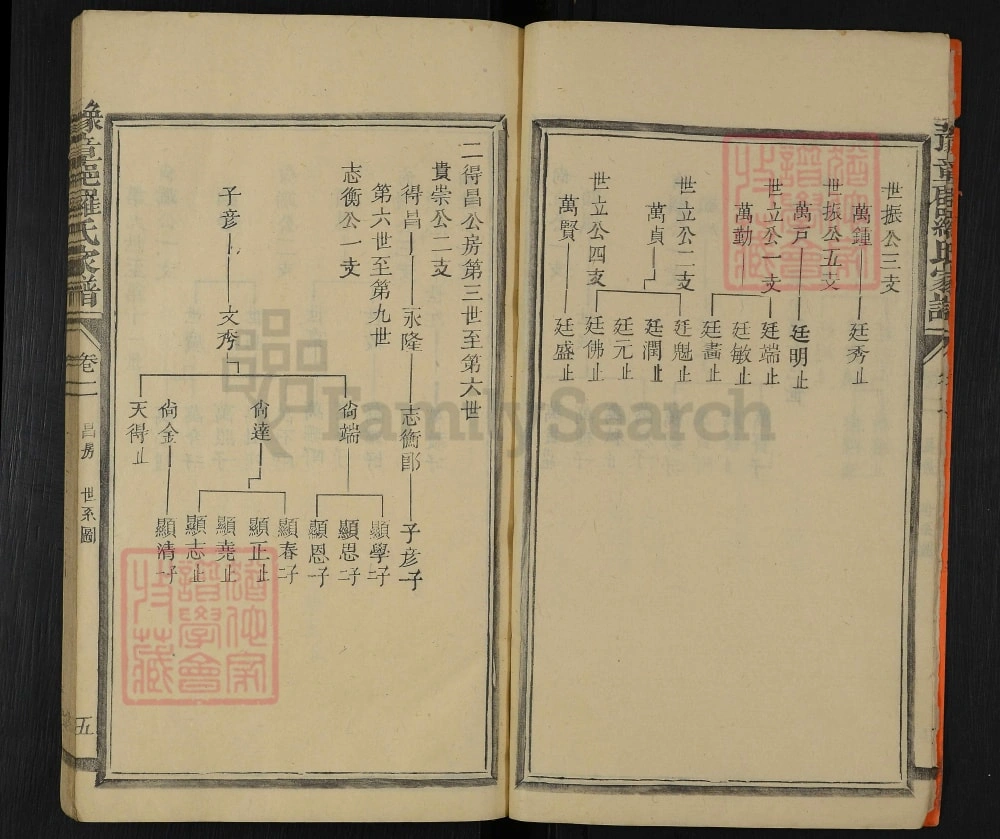 世振公三支
萬鍾 廷秀止
世振公五支
萬戸 廷明止
世立公一支 廷端止
萬勳 廷敏止
廷畵止
世立公二支 廷魁止
萬貞 廷潤止
廷元止
世立公四支 廷佛止
萬賢 廷盛止
二得昌公房第三世至第六世
貴崇公二支
得昌 永隆 志衡郎 子彥子
第六世至第九世
志衡公一支
子彥 文秀
尙端 顯學二子
顯思二子
顯恩一子
尙達 顯春二子
顯正止
顯堯止
顯志止
尙金 顯清一子
天得止
羅氏家譜
卷一
昌房 世系圖
五
譜學會
FamilySearch